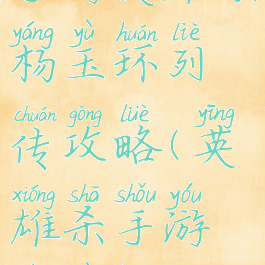 yáng yù huán liè
杨玉环列
chuán gōng lüè yīng
传攻略(英
xióng shā shǒu yóu
雄杀手游